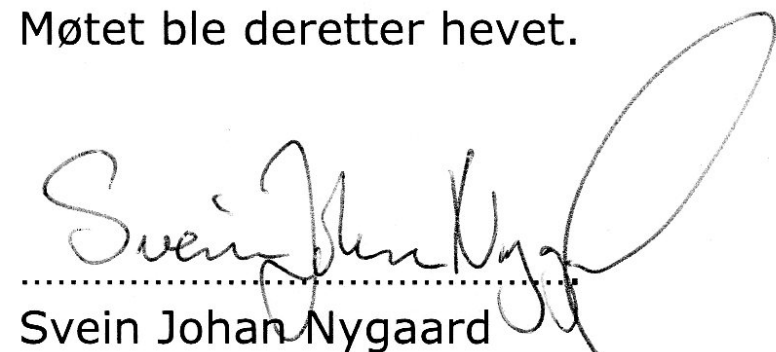 Møtet ble deretter hevet.
Svein Johan Nygaard
Svein Johan Nygaard